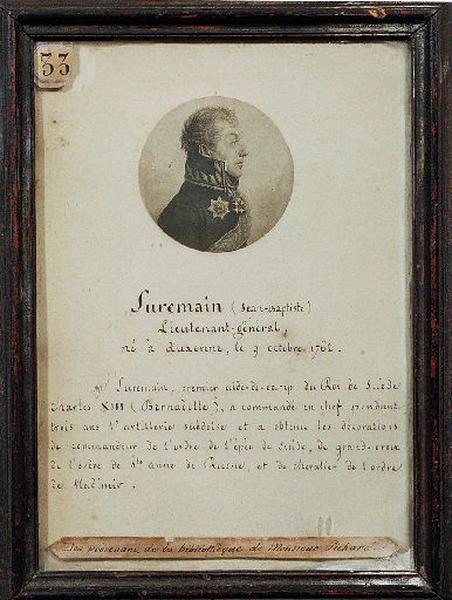 33
Suremain (Jean-Baptiste)
Lieutenant-général,
né à Auxonne, le 9 octobre 1762.
Mr Suremain, premier aide-de-camp du Roi de Suède
Charles XIII (Bernadotte), a commandé en chef pendant
trois ans l'artillerie suédoise et a obtenu les décorations
de commandeur de l'ordre de l'épée de Suède, de grand-croix
de l'ordre de Ste Anne de Russie, et de chevalier de l'ordre
de Wladimir.
provenant de la bibliothèque de Monsieur Pichard